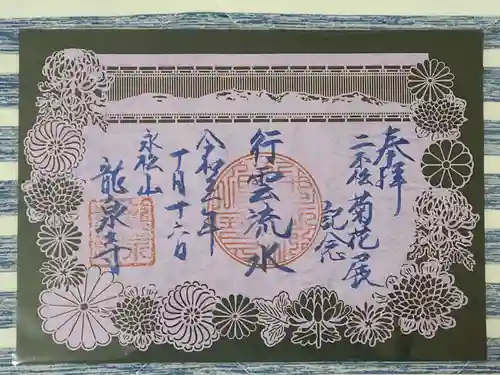 奉拝
二本松菊花展
記念
行雲流水
令和三年
十月十六日
永松山
龍泉寺